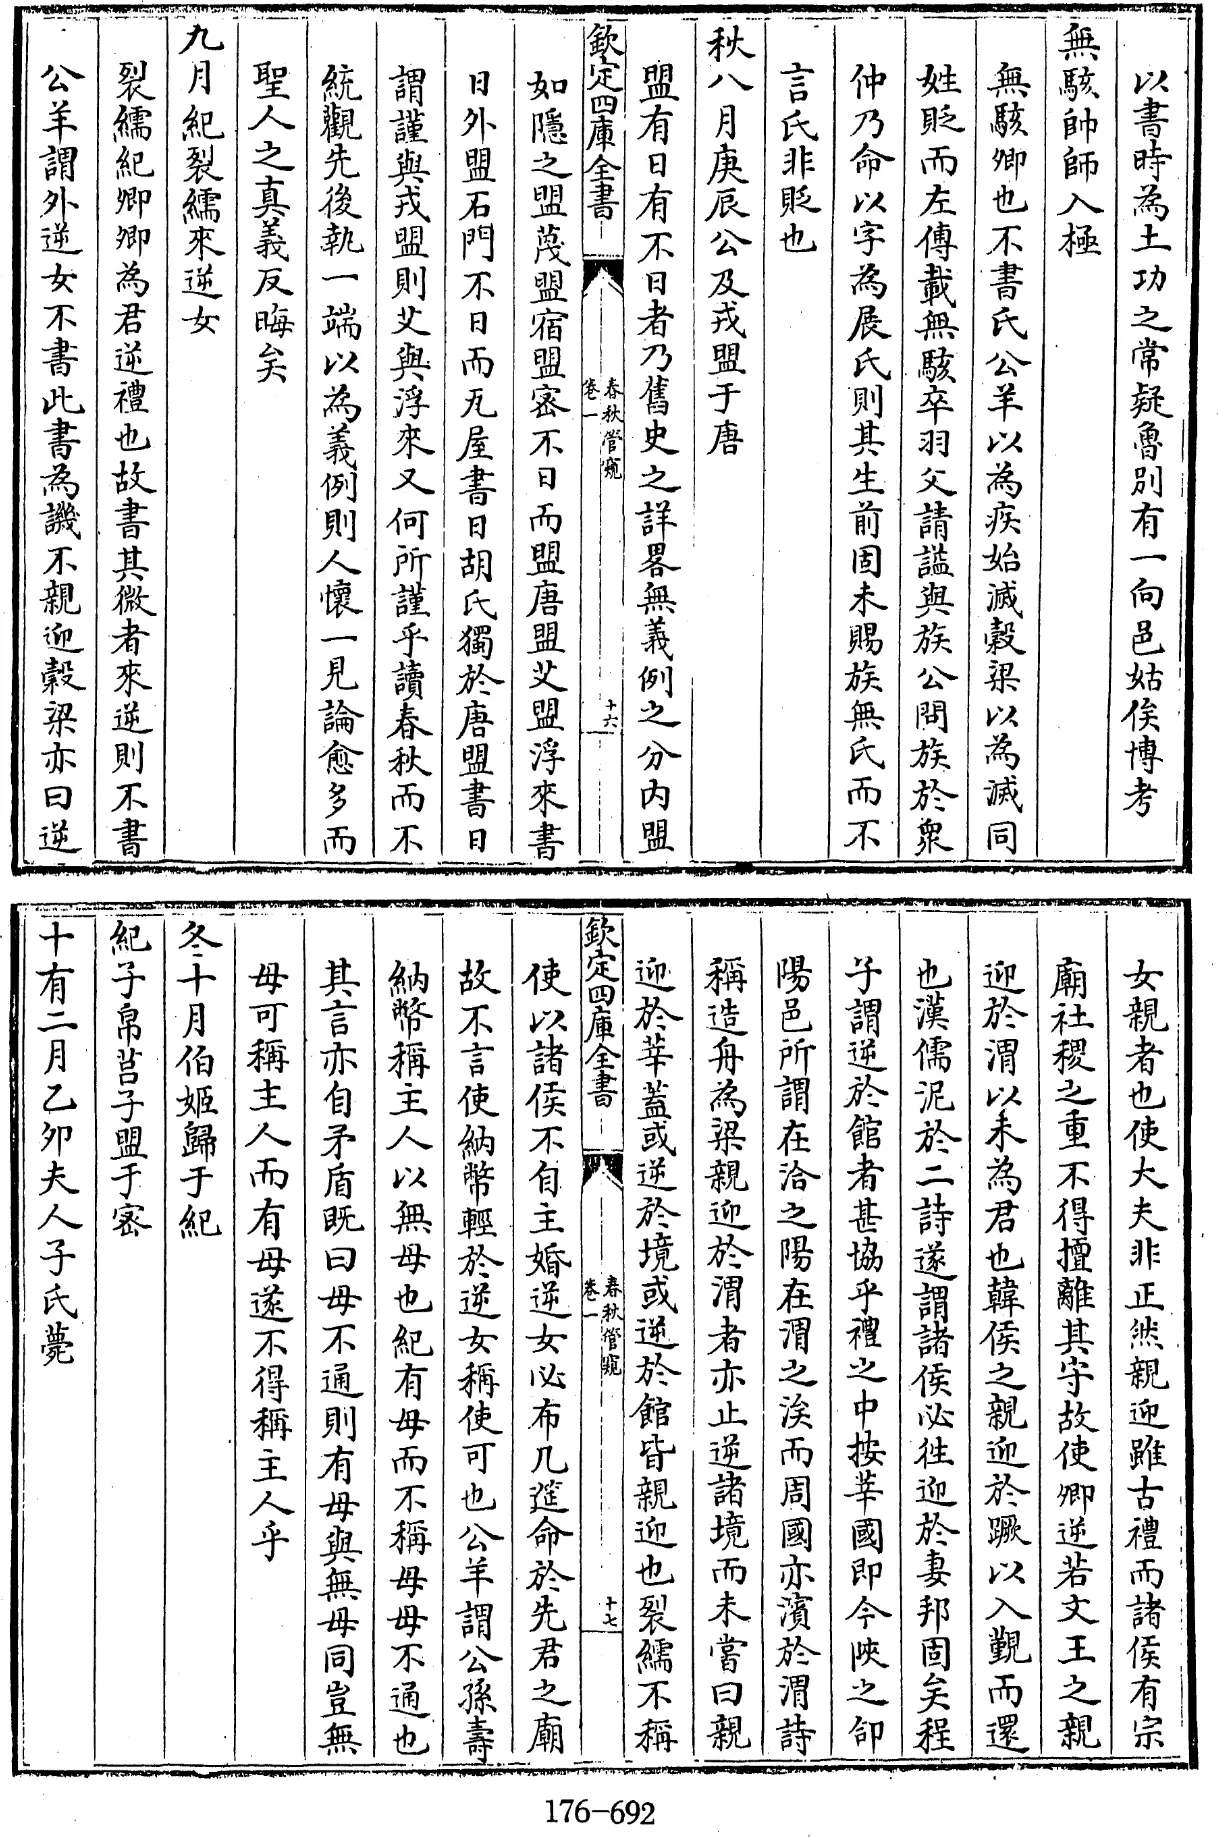 以書時為土功之常疑魯別有一向邑姑俟博考
無駭帥師入極
無駭卿也不書氏公羊以為疾始滅穀梁以為滅同
姓貶而左傳載無駭卒羽父請諡與族公問族於衆
仲乃命以字為展氏則其生前固未賜族無氏而不
言氏非貶也
秋八月庚辰公及戎盟于唐
盟有日有不日者乃舊史之詳畧無義例之分内盟
欽定四庫全書
春秋管窺
卷一
十六
如隱之盟蔑盟宿盟密不日而盟唐盟艾盟浮來書
日外盟石門不日而瓦屋書日胡氏獨於唐盟書日
謂謹與戎盟則艾與浮來又何所謹乎讀春秋而不
統觀先後執一端以為義例則人懷一見論愈多而
聖人之真義反晦矣
九月紀裂繻來逆女
裂繻紀卿卿為君逆禮也故書其微者來逆則不書
公羊謂外逆女不書此書為譏不親迎穀梁亦曰逆
女親者也使大夫非正然親迎雖古禮而諸侯有宗
廟社稷之重不得擅離其守故使卿逆若文王之親
迎於渭以未為君也韓侯之親迎於蹶以入覲而還
也漢儒泥於二詩遂謂諸侯必徃迎於妻邦固矣程
子謂逆於館者甚協乎禮之中按莘國即今陜之郃
陽邑所謂在洽之陽在渭之涘而周國亦濱於渭詩
稱造舟為梁親迎於渭者亦止逆諸境而未嘗曰親
迎於莘蓋或逆於境或逆於館皆親迎也裂繻不稱
欽定四庫全書
春秋管窺
卷一
十七
使以諸侯不自主婚逆女必布几筵命於先君之廟
故不言使納幣輕於逆女稱使可也公羊謂公孫壽
納幣稱主人以無母也紀有母而不稱母母不通也
其言亦自矛盾既曰母不通則有母與無母同豈無
母可稱主人而有母遂不得稱主人乎
冬十月伯姬歸于紀
紀子帛莒子盟于密
十有二月乙卯夫人子氏薨
176-692